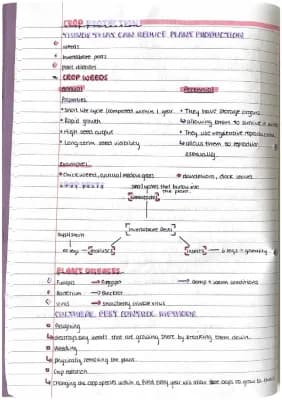 CROP PROTECTION
THINGS THAT CAN REDUCE PLANT PRODUCTION
weeds
Invertebrate pests
plant diseases
CROP WEEDS
Annual
Perennial
Properties
• Short life cycle (completed within 1 year
• They have storage organs
• Rapid growth
↳ allowing them to survive in
• High seed output
• They use vegetative
• Long term seed viability
↳ allows them to reproduce
asexually
Examples
• Chickweed, annual meadow grass
• dandelions, dock leaves
CROP PESTS
small worms that burrow into
[nematodes]
the plant.
[Invertebrate Pests]
[molluscs]
[insects]
6 legs
PLANT DISEASES
Fungus
→
→ damp + warm conditions
Bacterium →
Virus → strawberry crinkle virus
CULTURAL PEST CONTROL METHODS
Ploughing
↳ destroys any weeds that are growing there by breaking them down.
• Weeding
↳ physically removing the plants.
• Crop rotation
↳ Changing the crop species within a field every year will allow